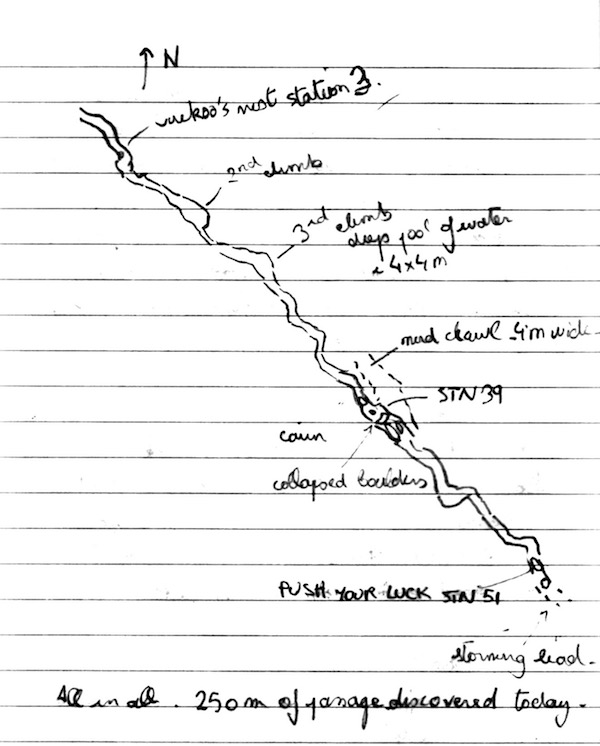 N
cuckoo's nest station 3.
2nd climb
3rd climb
deep pool of water
~ 4x4m
mud crawl 4m wide
STN 39
cairn
collapsed boulders
PUSH YOUR LUCK STN 51
?
storming lead.
All in all. 250m of passage discovered today.